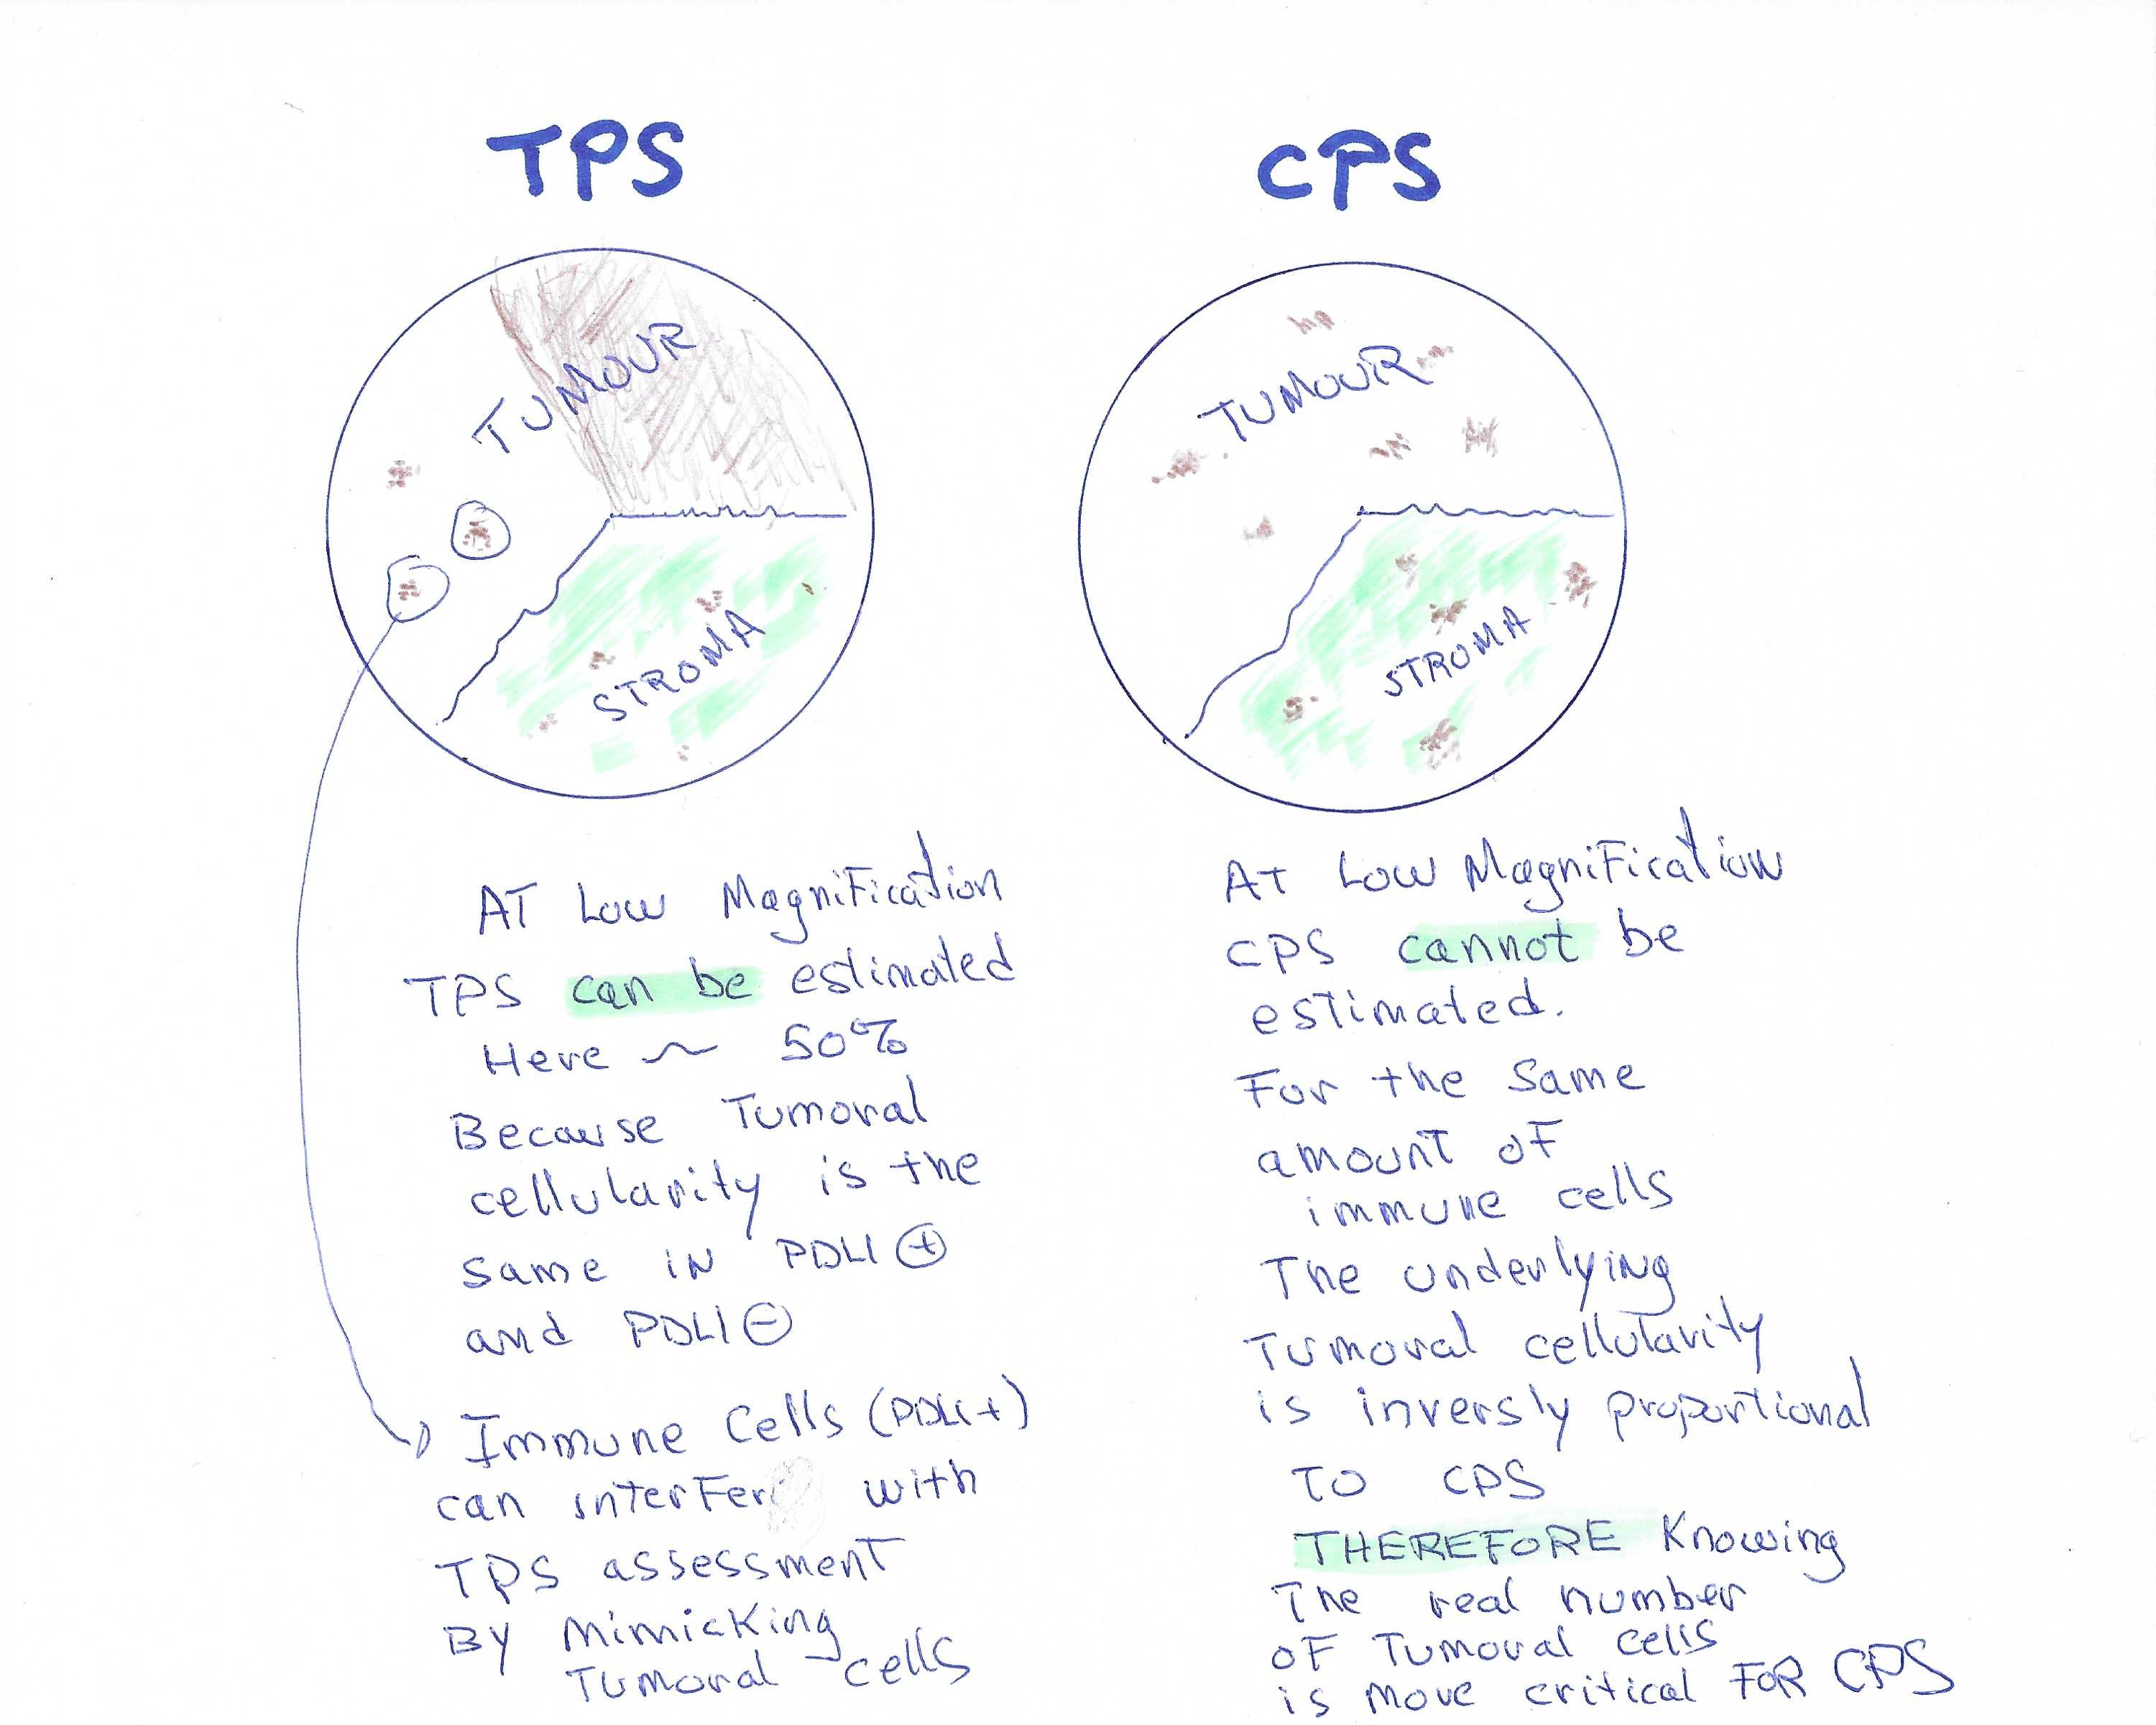 TPS
TUMOUR
STROMA
AT Low Magnification
TPS can be estimated
Here ~ 50%
Because Tumoral
cellularity is the
same in PDL1 ⊕
and PDL1 ⊖
Immune Cells (PDL1+)
can interfer with
TPS assessment
By Mimicking
Tumoral cells
CPS
TUMOUR
STROMA
At Low Magnification
CPS cannot be
estimated.
For the same
amount of
immune cells
The underlying
Tumoral cellularity
is inversly proportional
TO CPS
THEREFORE Knowing
The real number
OF Tumoral cells
is more critical FOR CPS